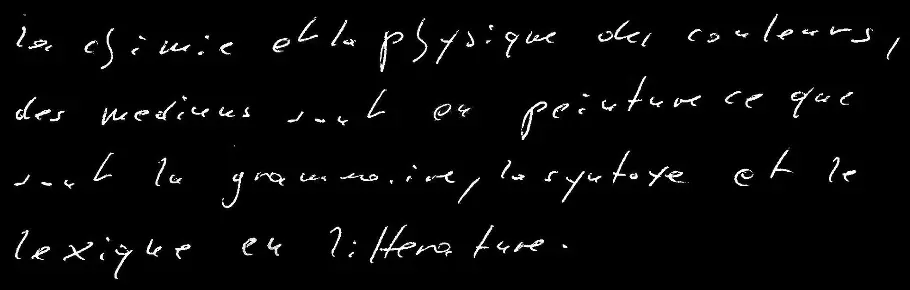 la chimie et la physique des couleurs,
des mediums sont en peinture ce que
sont la grammaire, la syntaxe et le
lexique en litterature.